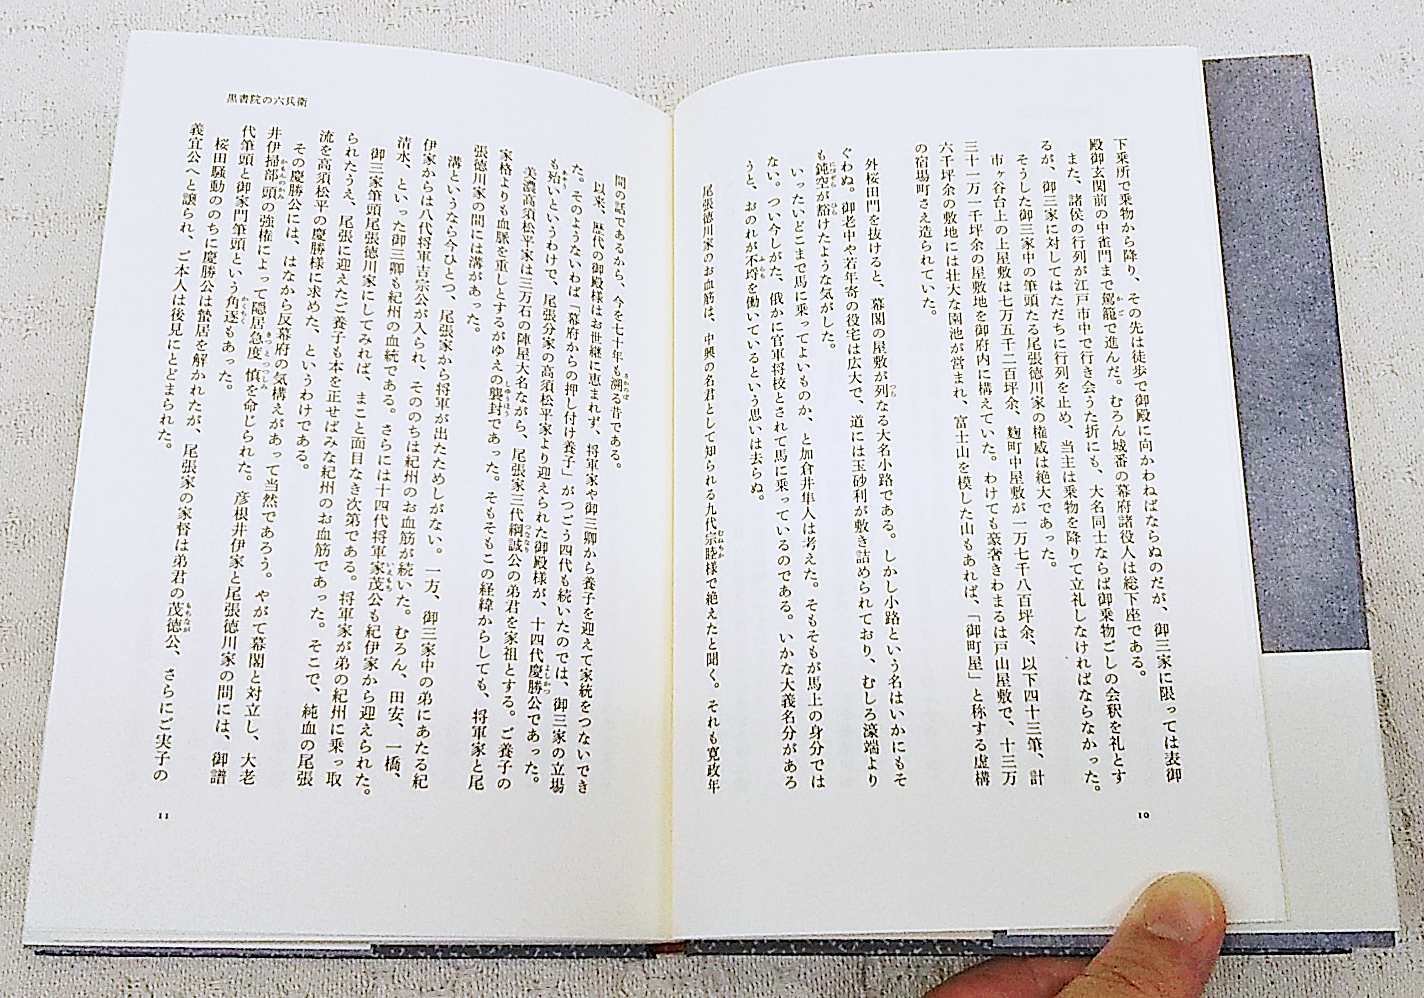 下乗所で乗物から降り、その先は徒歩で御殿に向かわねばならぬのだが、御三家に限っては表御
殿御玄関前の中雀門まで駕籠で進んだ。むろん城番の幕府諸役人は総下座である。
また、諸侯の行列が江戸市中で行き会うた折にも、大名同士ならば御乗物ごしの会釈を礼とす
るが、御三家に対してはただちに行列を止め、当主は乗物を降りて立礼しなければならなかった。
そうした御三家中の筆頭たる尾張徳川家の権威は絶大であった。
市ヶ谷台上の上屋敷は七万五千二百坪余、麹町中屋敷が一万七千八百坪余、以下四十三筆、計
三十一万一千坪余の屋敷地を御府内に構えていた。わけても豪奢きわまるは戸山屋敷で、十三万
六千坪余の敷地には壮大な園池が営まれ、富士山を模した山もあれば、「御町屋」と称する虚構
の宿場町さえ造られていた。
外桜田門を抜けると、幕閣の屋敷が列なる大名小路である。しかし小路という名はいかにもそ
ぐわぬ。御老中や若年寄の役宅は広大で、道には玉砂利が敷き詰められており、むしろ濠端より
も鈍空が豁けたような気がした。
いったいどこまで馬に乗ってよいものか、と加倉井隼人は考えた。そもそもが馬上の身分では
ない。つい今しがた、俄かに官軍将校とされて馬に乗っているのである。いかな大義名分があろ
うと、おのれが不埒を働いているという思いは去らぬ。
尾張徳川家のお血筋は、中興の名君として知られる九代宗睦様で絶えたと聞く。それも寛政年
10
黒書院の六兵衛
間の話であるから、今を七十年も溯る昔である。
以来、歴代の御殿様はお世継に恵まれず、将軍家や御三卿から養子を迎えて家統をつないでき
た。そのようないわば「幕府からの押し付け養子」がつごう四代も続いたのでは、御三家の立場
も殆いというわけで、尾張分家の高須松平家より迎えられた御殿様が、十四代慶勝公であった。
美濃高須松平家は三万石の陣屋大名ながら、尾張家三代綱誠公の弟君を家祖とする。ご養子の
家格よりも血脈を重しとするがゆえの襲封であった。そもそもこの経緯からしても、将軍家と尾
張徳川家の間には溝があった。
溝というなら今ひとつ、尾張家から将軍が出たためしがない。一方、御三家中の弟にあたる紀
伊家からは八代将軍吉宗公が入られ、そののちは紀州のお血筋が続いた。むろん、田安、一橋、
清水、といった御三卿も紀州の血統である。さらには十四代将軍家茂公も紀伊家から迎えられた。
御三家筆頭尾張徳川家にしてみれば、まこと面目なき次第である。将軍家が弟の紀州に乗っ取
られたうえ、尾張に迎えたご養子も本を正せばみな紀州のお血筋であった。そこで、純血の尾張
流を高須松平の慶勝様に求めた、というわけである。
その慶勝公には、はなから反幕府の気構えがあって当然であろう。やがて幕閣と対立し、大老
井伊掃部頭の強権によって隠居急度慎を命じられた。彦根井伊家と尾張徳川家の間には、御譜
代筆頭と御家門筆頭という角逐もあった。
桜田騒動ののちに慶勝公は蟄居を解かれたが、尾張家の家督は弟君の茂徳公、さらにご実子の
義宜公へと譲られ、ご本人は後見にとどまられた。
11